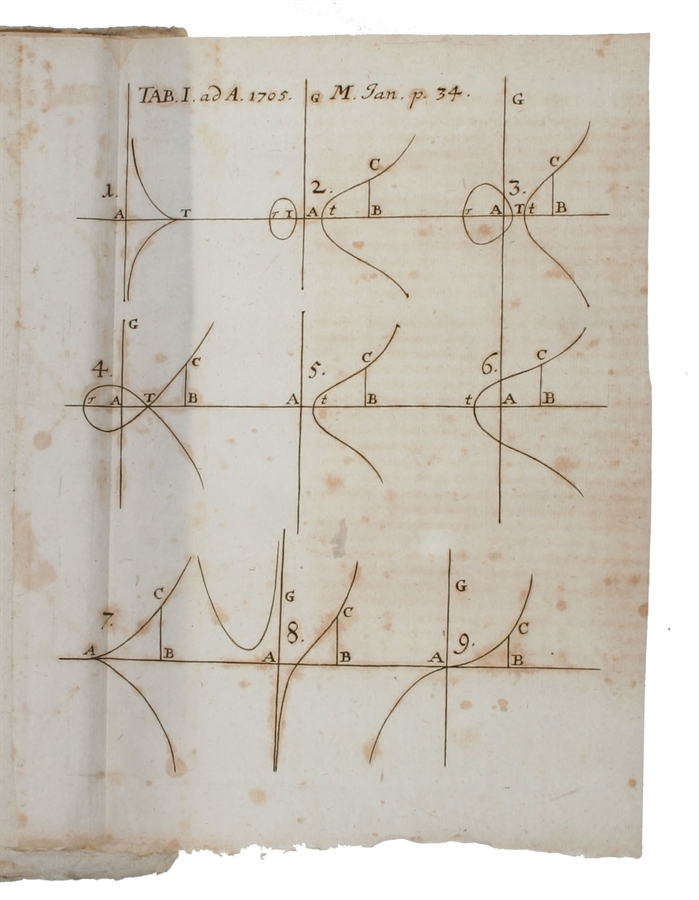 TAB. I. ad A. 1705. G M. Jan. p. 34. G
1. A T
2. T A t C B
3. A T t C B
G
4. A T C B
5. A t C B
6. t A C B
7. A C B
8. G A C B
9. G A C B